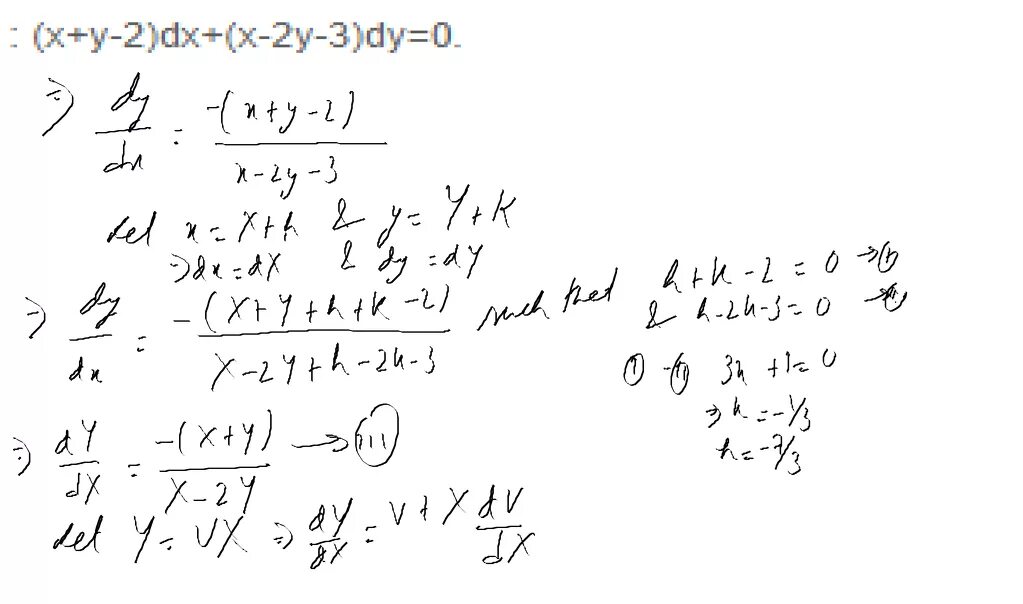 : (x+y-2)dx+(x-2y-3)dy=0.
⇒ dy/dx = -(x+y-2)/(x-2y-3)
Let x = X+h & y = Y+k
⇒ dx = dX & dy = dY
⇒ dy/dx = -(X+Y+h+k-2)/(X-2Y+h-2k-3) such that h+k-2=0 → (i)
& h-2k-3=0 → (ii)
(i) - (ii) 3k+1=0
⇒ k = -1/3
h = -7/3
⇒ dY/dX = -(X+Y)/(X-2Y) → (iii)
Let Y = VX ⇒ dY/dX = V + X dV/dX